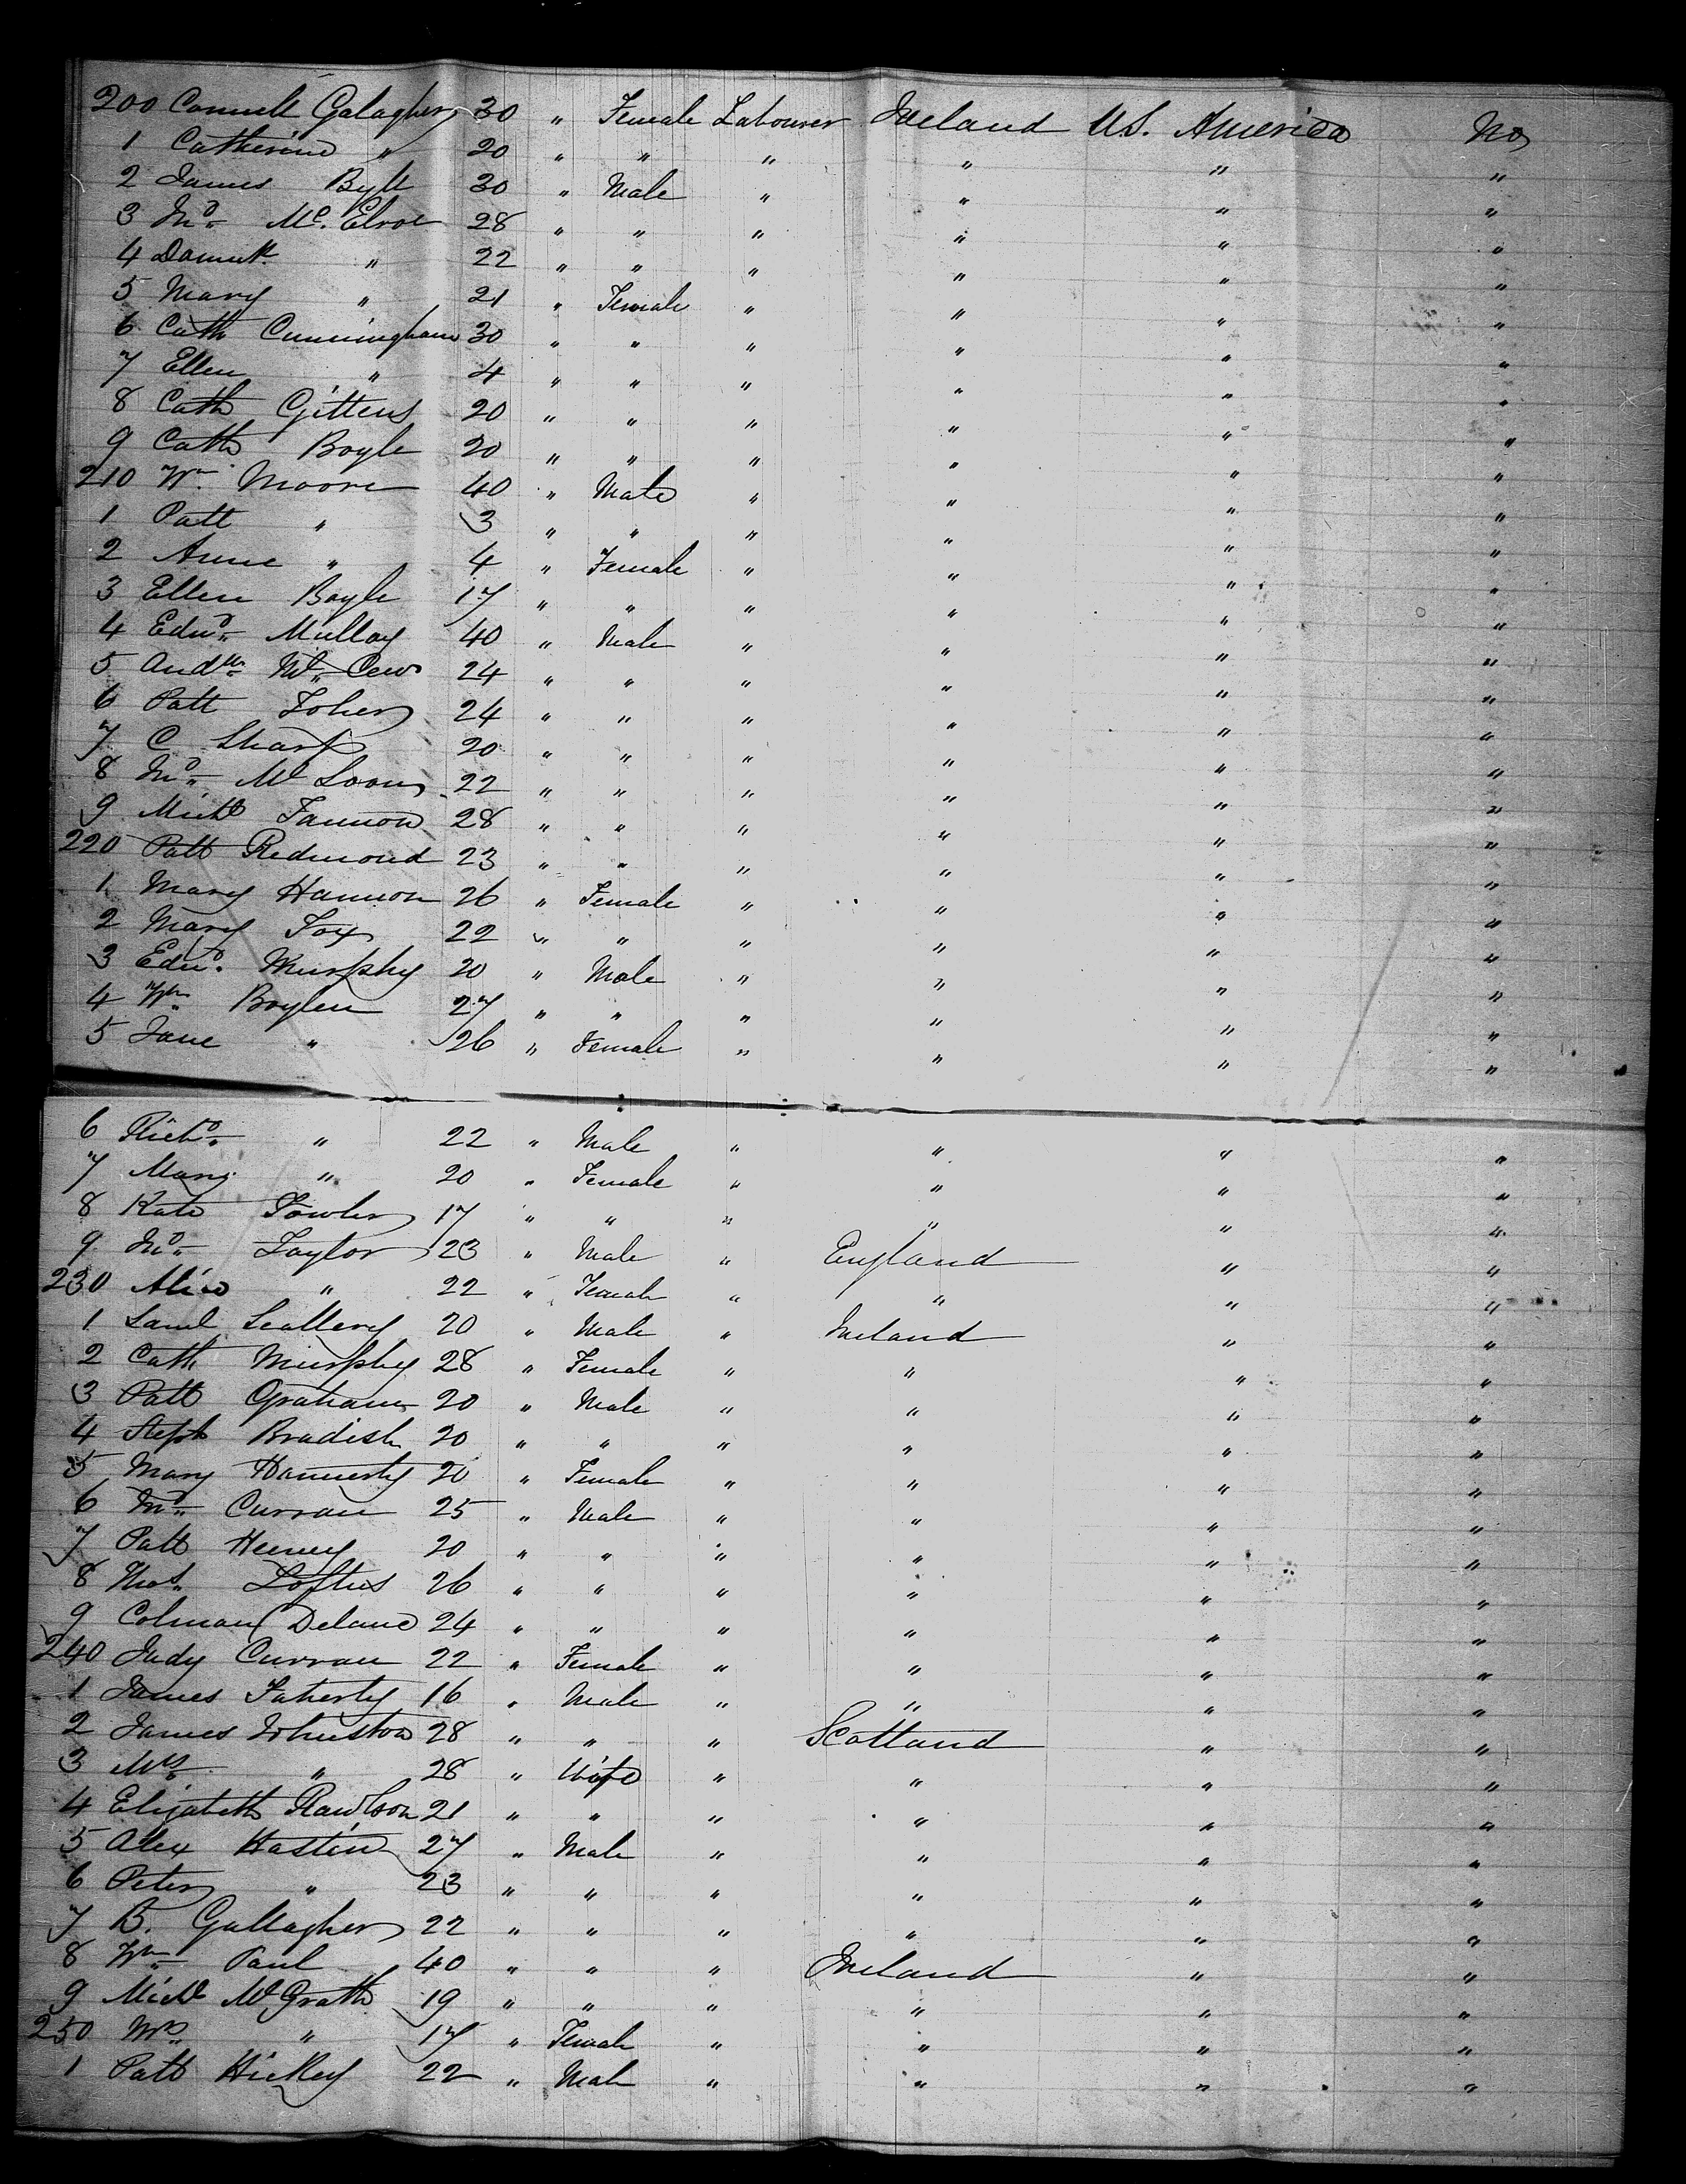 200 Connell Galagher 30 " Female Labourer Ireland U.S. America No
1 Catherine " 20 " " " " " "
2 James Bylt 30 " Male " " " "
3 Jno. Mc. Elroe 28 " " " " " "
4 " 22 " " " " " "
5 Mary " 21 " Female " " " "
6 Cath Cunningham 30 " " " " " "
7 Ellen " 4 " " " " " "
8 Cath Gittens 20 " " " " " "
9 Cath Boyle 20 " " " " " "
210 Wm. Moore 40 " Male " " " "
1 Patt " 3 " " " " " "
2 Anne " 4 " Female " " " "
3 Ellen Boyle 17 " " " " " "
4 Edwd. Mulloy 40 " Male " " " "
5 Andw. Mc. 24 " " " " " "
6 Patt Foher 24 " " " " " "
7 C Sharp 20 " " " " " "
8 Jno. Mc Loon 22 " " " " " "
9 Michl Fannon 28 " " " " " "
220 Patt Redmond 23 " " " " " "
1 Mary Hannon 26 " Female " " " "
2 Mary Fox 22 " " " " " "
3 Edwd. Murphy 20 " Male " " " "
4 Wm. Boylen 27 " " " " " "
5 Jane " 26 " Female " " " "
6 Richd. " 22 " Male " " " "
7 Mary " 20 " Female " " " "
8 Kate Fowler 17 " " " " " "
9 Jno. Taylor 23 " Male " England " "
230 Alice " 22 " Female " " " "
1 Saml Scallery 20 " Male " Ireland " "
2 Cath Murphy 28 " Female " " " "
3 Patt Graham 20 " Male " " " "
4 Steph Bradish 20 " " " " " "
5 Mary Hannerty 20 " Female " " " "
6 Jno. Curran 25 " Male " " " "
7 Patt Heeney 20 " " " " " "
8 Thos. Loftus 26 " " " " " "
9 Colman Delane 24 " " " " " "
240 Judy Curran 22 " Female " " " "
1 James Faherty 16 " Male " " " "
2 James Johnston 28 " " " Scotland " "
3 Mrs. " 28 " Wife " " " "
4 Elizabeth Rawlson 21 " " " " " "
5 Alex Hastin 27 " Male " " " "
6 Peter " 23 " " " " " "
7 B. Gallagher 22 " " " " " "
8 Wm. Paul 40 " " " Ireland " "
9 Michl McGrath 19 " " " " " "
250 Mrs. " 17 " Female " " " "
1 Patt Hickey 22 " Male " " " "